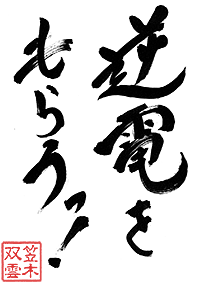 逆電を
もらうっ!
笠木
双雲